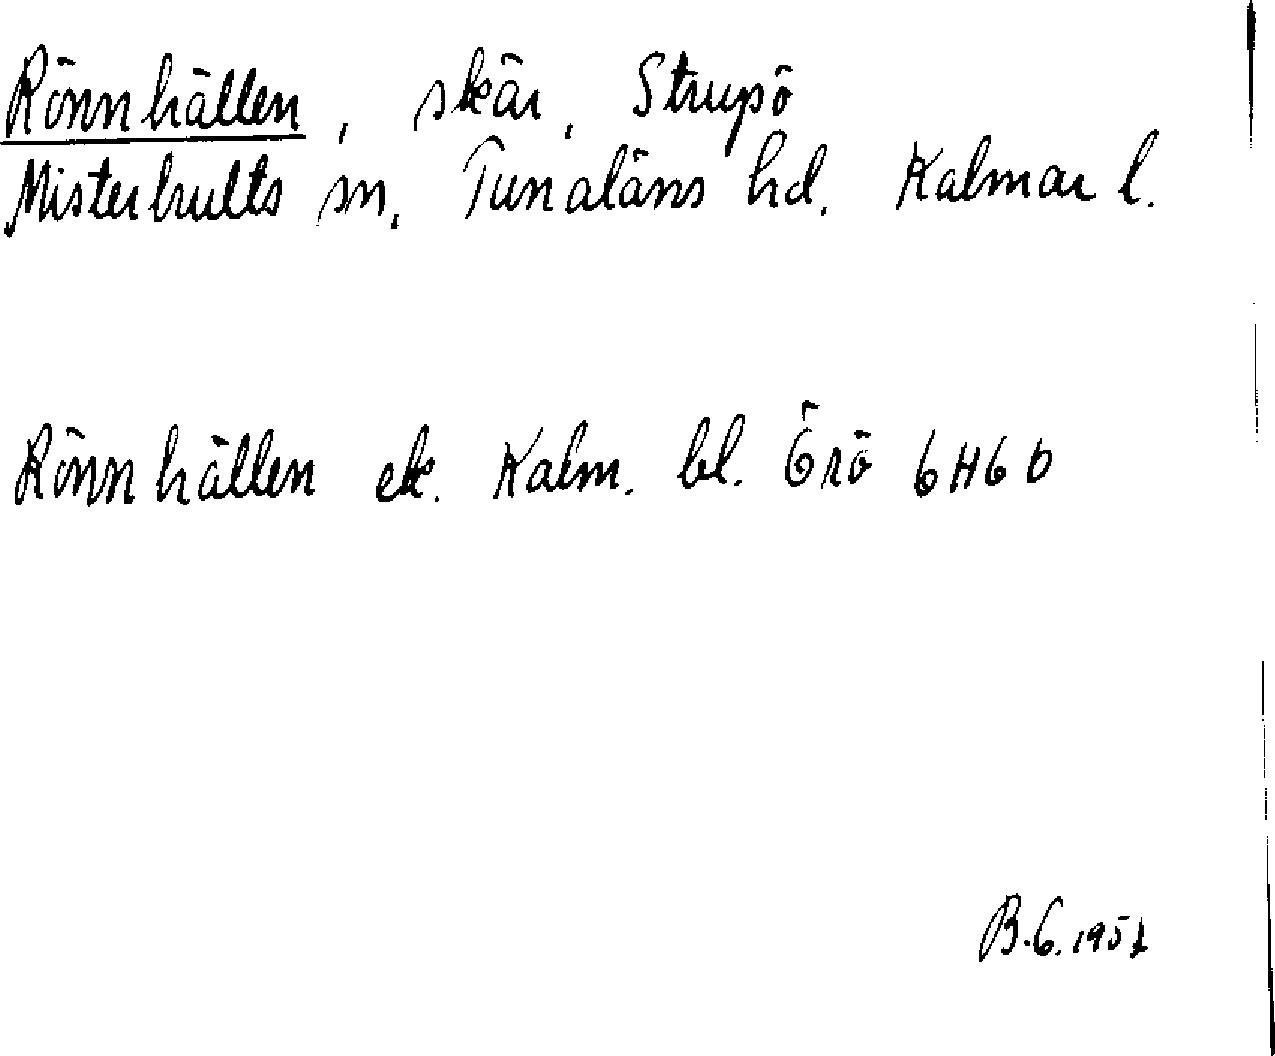 Rönnhällen, skär, Strupö
Misterhults sn. Tunaläns hd. Kalmar l.
Rönnhällen ek. Kalm. bl. Örö 6H6b
B.G. 1951